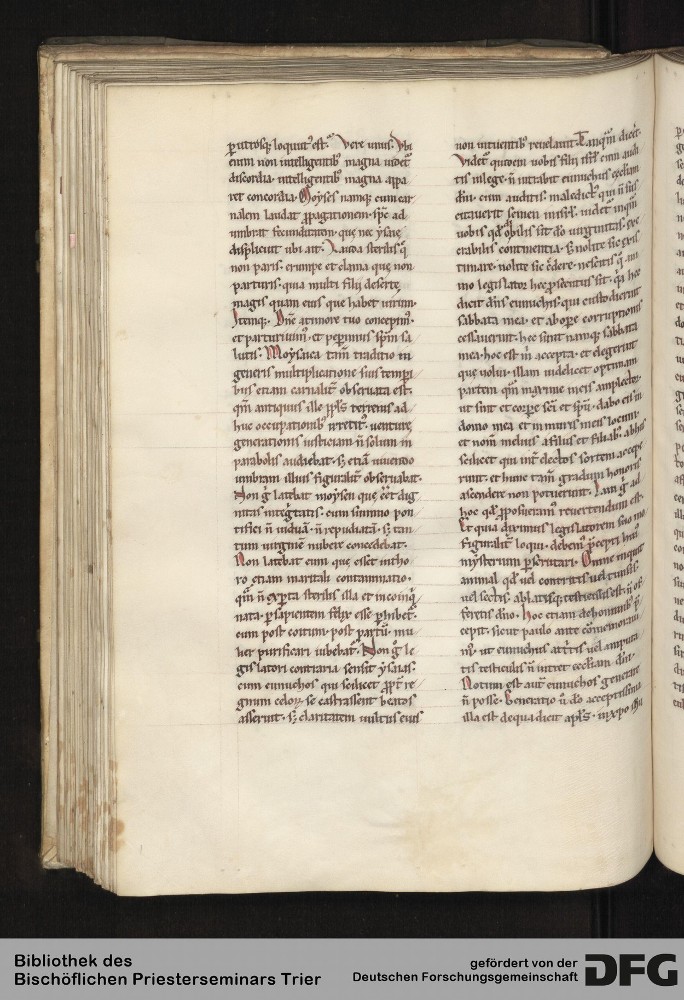 p utrosq; loquut' est. Vere unus. Ubi
enim non intelligentib' magna videt'
discordia. intelligentib' magna appa
ret concordia. Moyses namq; cum car
nalem laudat propagationem. sp'c ad
umbrat fecunditatem. que nec ysaie
displicuit ubi ait. Lauda sterilis q̄
non paris. erumpe et clama que non
parturis. quia multi filij deserte
magis quam eius que habet virum.
Itemq;. Dn̄e a timore tuo concepim'.
et parturivim'. et peperimus sp̄m sa
lutis. Moysaica tam̄ traditio in
generis multiplicatione suis tempori
bus etiam carnalit' observata est.
qm̄ antiquus ille ppl̄s terrenis ad
huc occupationib' irretit'. venture
generationis iusticiam n̄ solum in
parabolis audiebat. s; etiā vivendo
umbram illius figuralit' observabat.
Non g' latebat moysen que eēt dig
nitas integ'tatis. cum summo pon
tifici n̄ viduā. n̄ repudiatā. s; tan
tum virginē nubere concedebat.
Non latebat eum que esset in tho
ro etiam maritali contaminatio.
qm̄ n̄ experta sterilis illa et incoinq̇
nata. p sapientem felix esse phibet'.
cum post coitum. post partū. mu
lier purificari iubebat'. Non g' le
gislatori contraria sensit ysaias.
cum eunuchos qui scilicet ppt' re
gnum celor' se castrassent beatos
asserunt. s; claritatem vultus eius
non intuentib' revelavit. Tanqm̄ dicer&.
Videt' quidem vobis filij isrl̄ cum audi
tis in lege. n̄ intrabit eunuchus ecclīam
dn̄i. cum auditis. maledict' qui n̄ sus
citaverit semen in isrl̄. videt' inqm̄
vobis qd̄ pbilis sit dō virginitas. exe
crabilis continentia. S; nolite sic exis
timare. nolite sic credere. nescitis q̄ a
mo legislator hec psecutus sit. q̄a hec
dicit dn̄s eunuchis. qui custodierint
sabbata mea. et ab opere corruptionis
cessaverint. hec sunt namq; sabbata
mea. hoc est m̄ accepta. et elegerint
que volui. illam videlicet optimam
partem qm̄ maxime meis amplector.
ut sint et corpe sc̄i et spū. dabo eis in
domo mea et in muris meis locum.
et nom̄ melius a filiis et filiab'. ab hiis
scilicet qui int' electos sortem accepe
runt. et hunc tam̄ gradum honoris
ascendere non potuerunt. Iam g' ad
hoc qd̄ pposueram' revertendum est.
Et quia diximus legislatorem suo mo
figuralit' loqui. debem' pcepti hui'
mysterium pscrutari. Omne inquit
animal qd̄ vel contritis vel tunsis.
vel sectis ablatisq; testiculis est. n̄ of
feretis dn̄o. Hoc etiam de hominib' p
cepit. sicut paulo ante cōmemoravi
m'. ut eunuchus attritis vel amputa
tis testiculis n̄ intret ecclīam dn̄i.
Notum est aut̄ eunuchos generare
n̄ posse. Generatio ū dō acceptissima
illa est de qua dicit apl̄s. in xp̄o ihū
Bibliothek des
Bischöflichen Priesterseminars Trier
gefördert von der
Deutschen Forschungsgemeinschaft
DFG